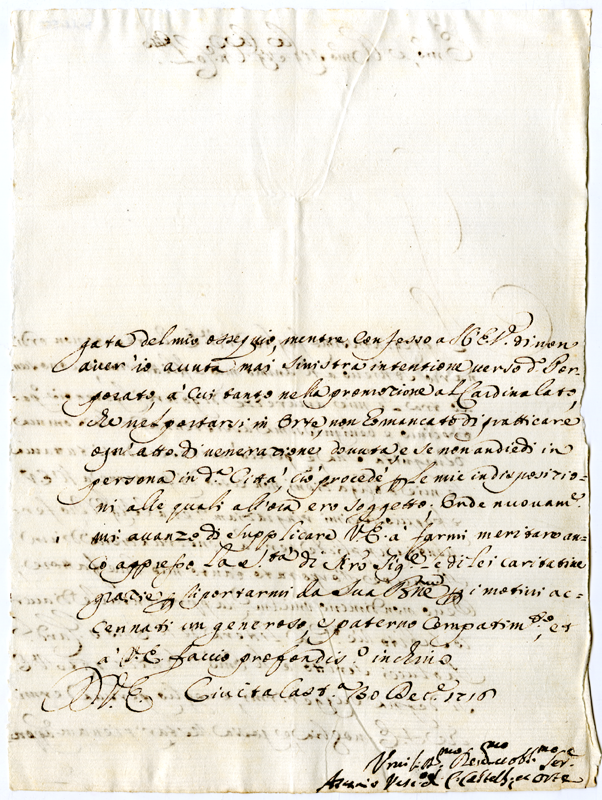 gata del mio ossequio, mentre confesso a V. E. di non
aver' io avuta mai sinistra intentione verso d.º Por-
porato, a' cui tanto nella promozione al Cardinalato,
che nel portarsi in Orte, non ho mancato di pratticare
ogni atto di venerazione dovuta, e se non andiedi in
persona in d.ª Città, ciò procedè p le mie indisposizio-
ni alle quali all'ora ero soggetto. Onde nuovam.e
mi avanzo di supplicare V. E. a farmi meritare an-
co appresso la S.tà di Nro Sig.re e di lei caritative
grazie p riportarmi da Sua Bne p i motivi ac-
cennati un generoso, e paterno compatim.to, et
à V. E. faccio profondis.º inchino
D. V. E. Civita Cast.ª 30 Dec.e 1716
Umil.mo Dev.mo obl.mo Ser.e
Vesc.º di C. Castell.ª e Orte